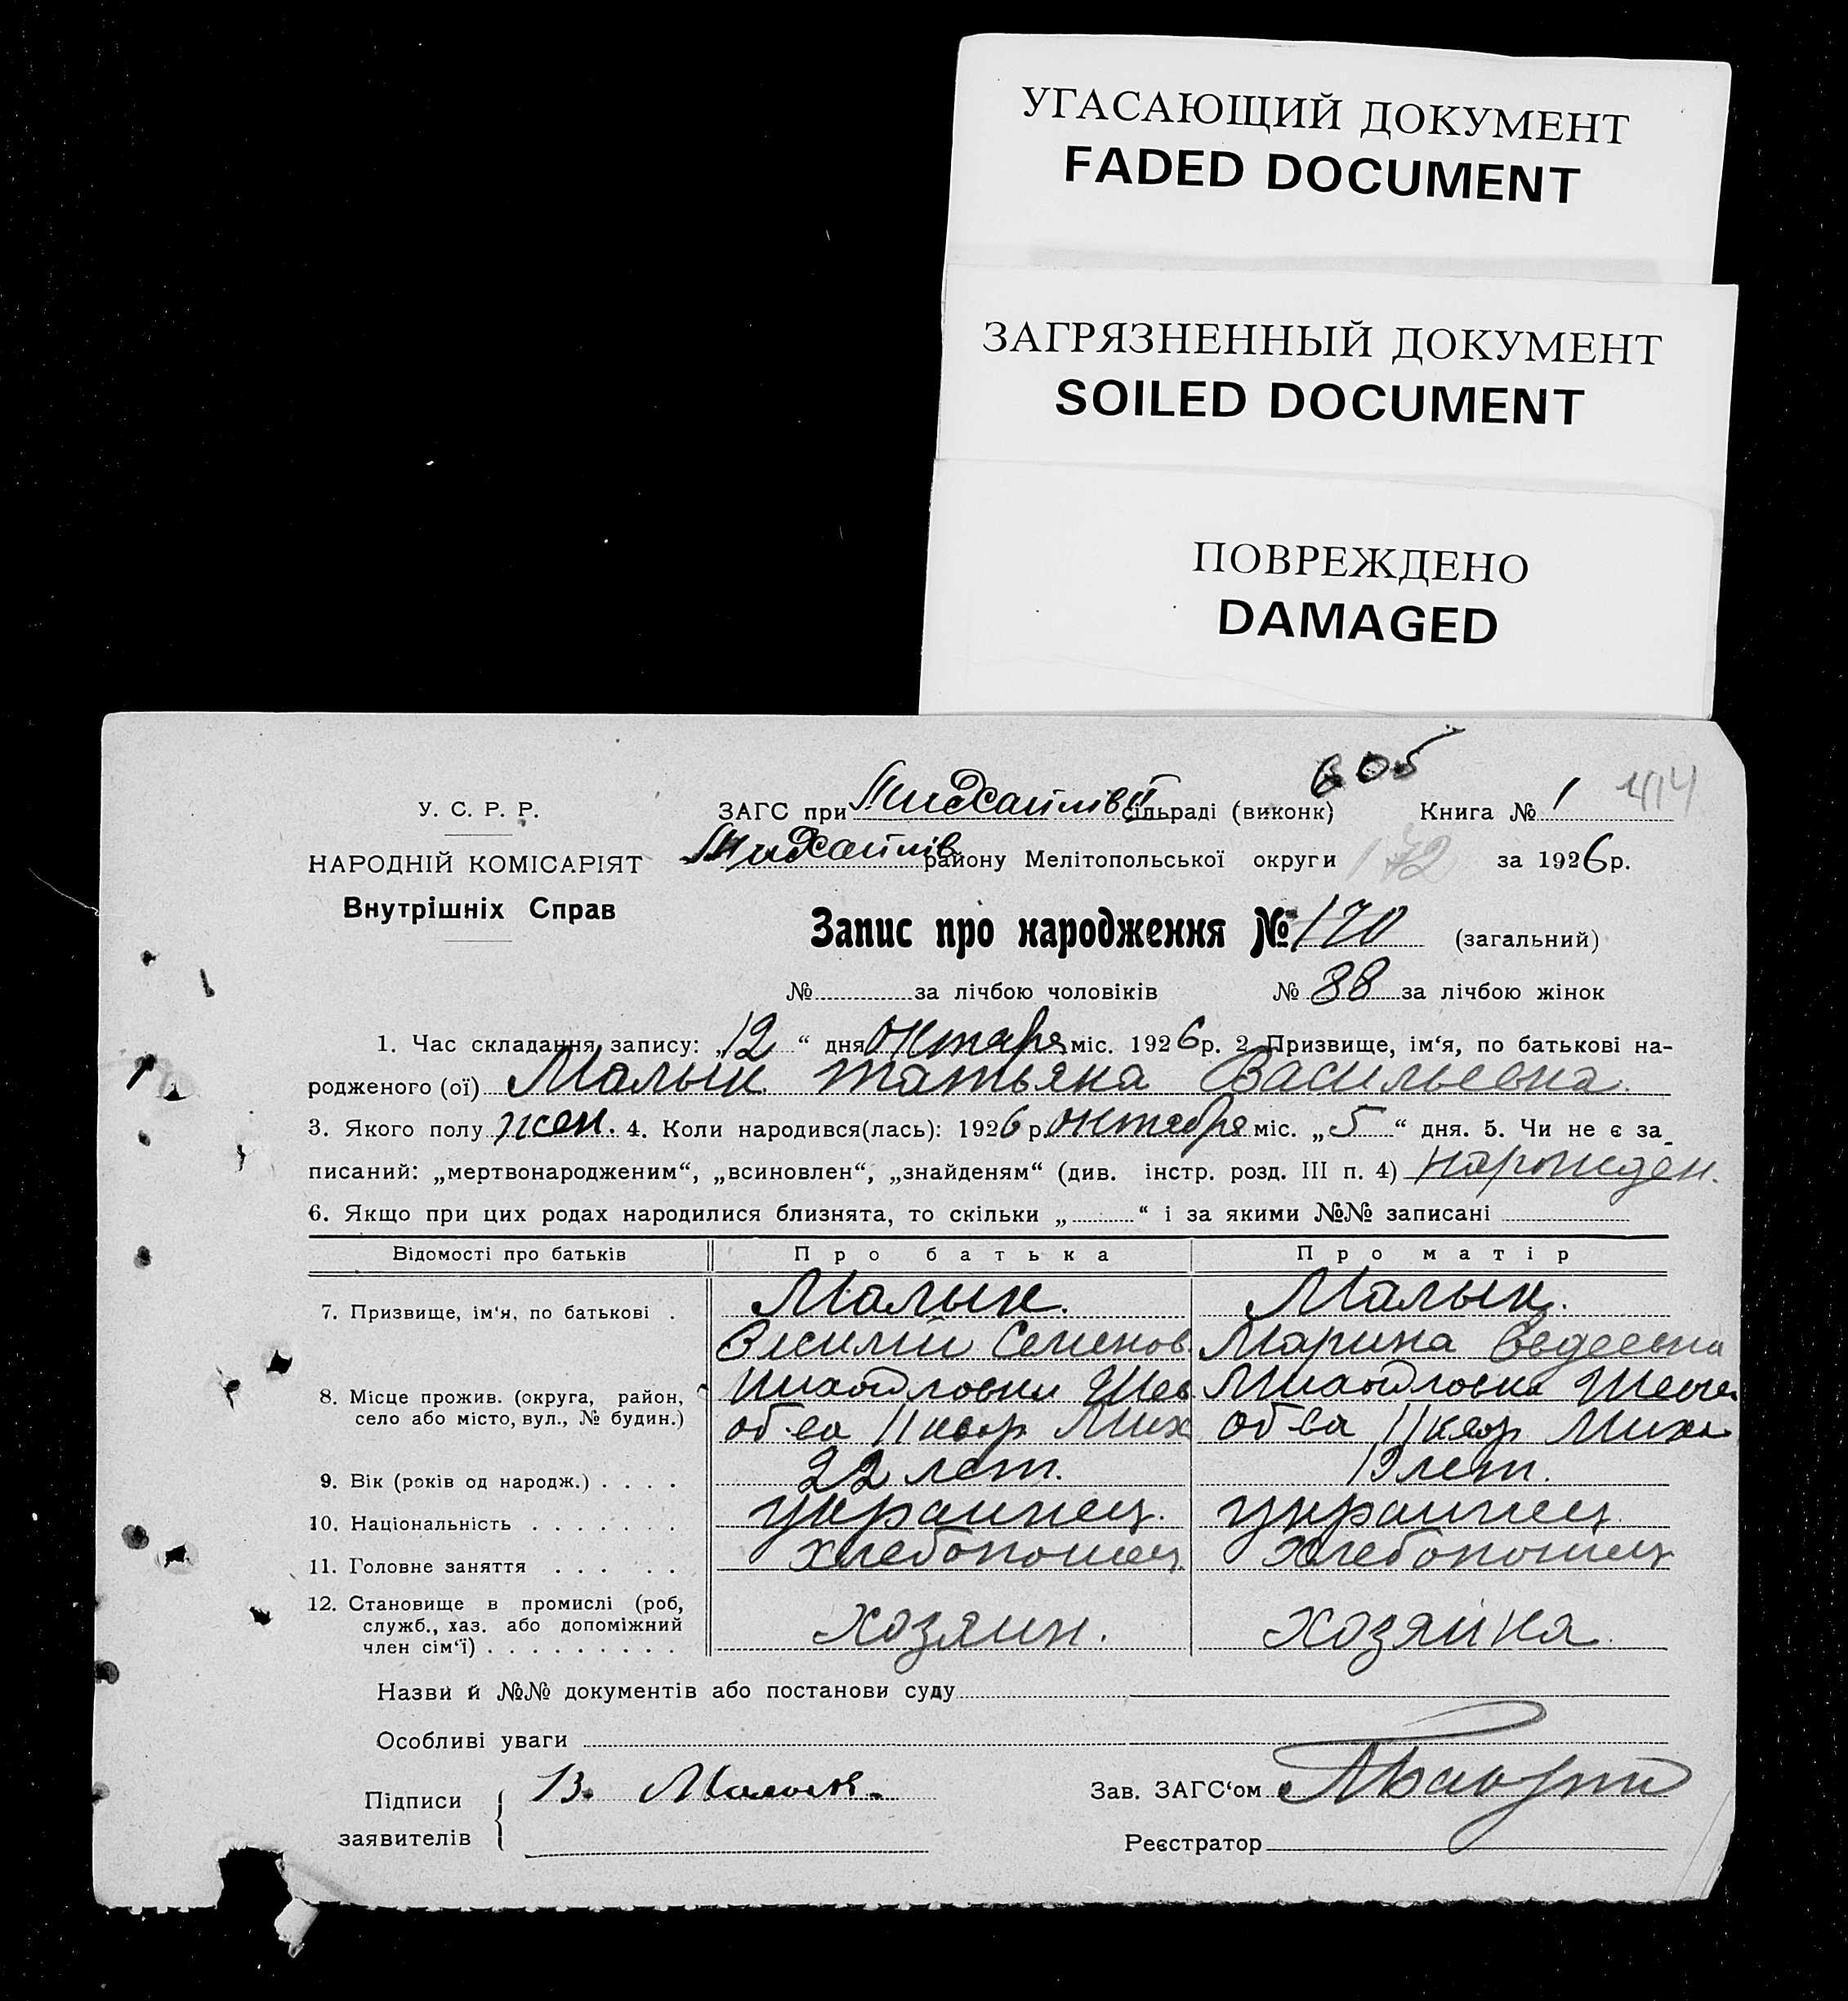 УГАСАЮЩИЙ ДОКУМЕНТ
FADED DOCUMENT
ЗАГРЯЗНЕННЫЙ ДОКУМЕНТ
SOILED DOCUMENT
ПОВРЕЖДЕНО
DAMAGED
605
У. С. Р. Р.
ЗАГС при Михайлів II сільраді (виконк) Книга № 1 414
НАРОДНІЙ КОМІСАРІЯТ
Михайлів району Мелітопольської округи 172 за 1926 р.
Внутрішніх Справ
Запис про народження № 170 (загальний)
№ за лічбою чоловіків № 88 за лічбою жінок
1. Час складання запису: „12“ дня октября міс. 1926 р. 2. Призвище, ім‘я, по батькові на-
родженого (ої) Малык Татьяна Васильевна
3. Якого полу жен. 4. Коли народився(лась): 1926 р. октября міс. „5“ дня. 5. Чи не є за_
писаний: „мертвонародженим“, „всиновлен“, „знайденям“ (див. інстр. розд. III п. 4) нарожден.
6. Якщо при цих родах народилися близнята, то скільки „ “ і за якими №№ записані
Відомості про батьків Про батька Про матір
7. Призвище, ім‘я, по батькові . Малык. Малык.
Василий Семенов. Марина Евдеевна
8. Місце прожив. (округа, район, Михайловка Шев Михайловка Шевч
село або місто, вул., № будин.) об-ва 11 квар Мих об-ва 11 квар Миха
9. Вік (років од народж.) . . . . 22 лет. 19 лет.
10. Національність . . . . . . . украинец. украинец
11. Головне заняття . . . . . хлебопошец хлебопошец
12. Становище в промислі (роб,
служб., хаз. або допоміжний
член сім‘ї) . . . . . . . . . хозяин. хозяйка.
Назви й №№ документів або постанови суду
Особливі уваги
Підписи В. Малык. Зав. ЗАГС‘ом
заявителів Реєстратор